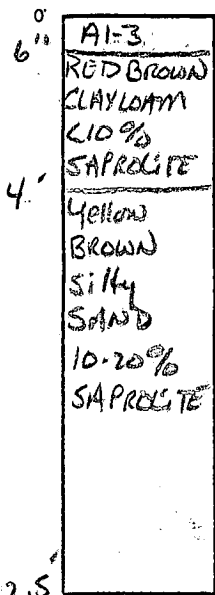 0'
A1-3
6"
RED BROWN
CLAY LOAM
<10%
SAPROLITE
4'
Yellow
BROWN
Silty
SAND
10-20%
SAPROLITE
2.5'